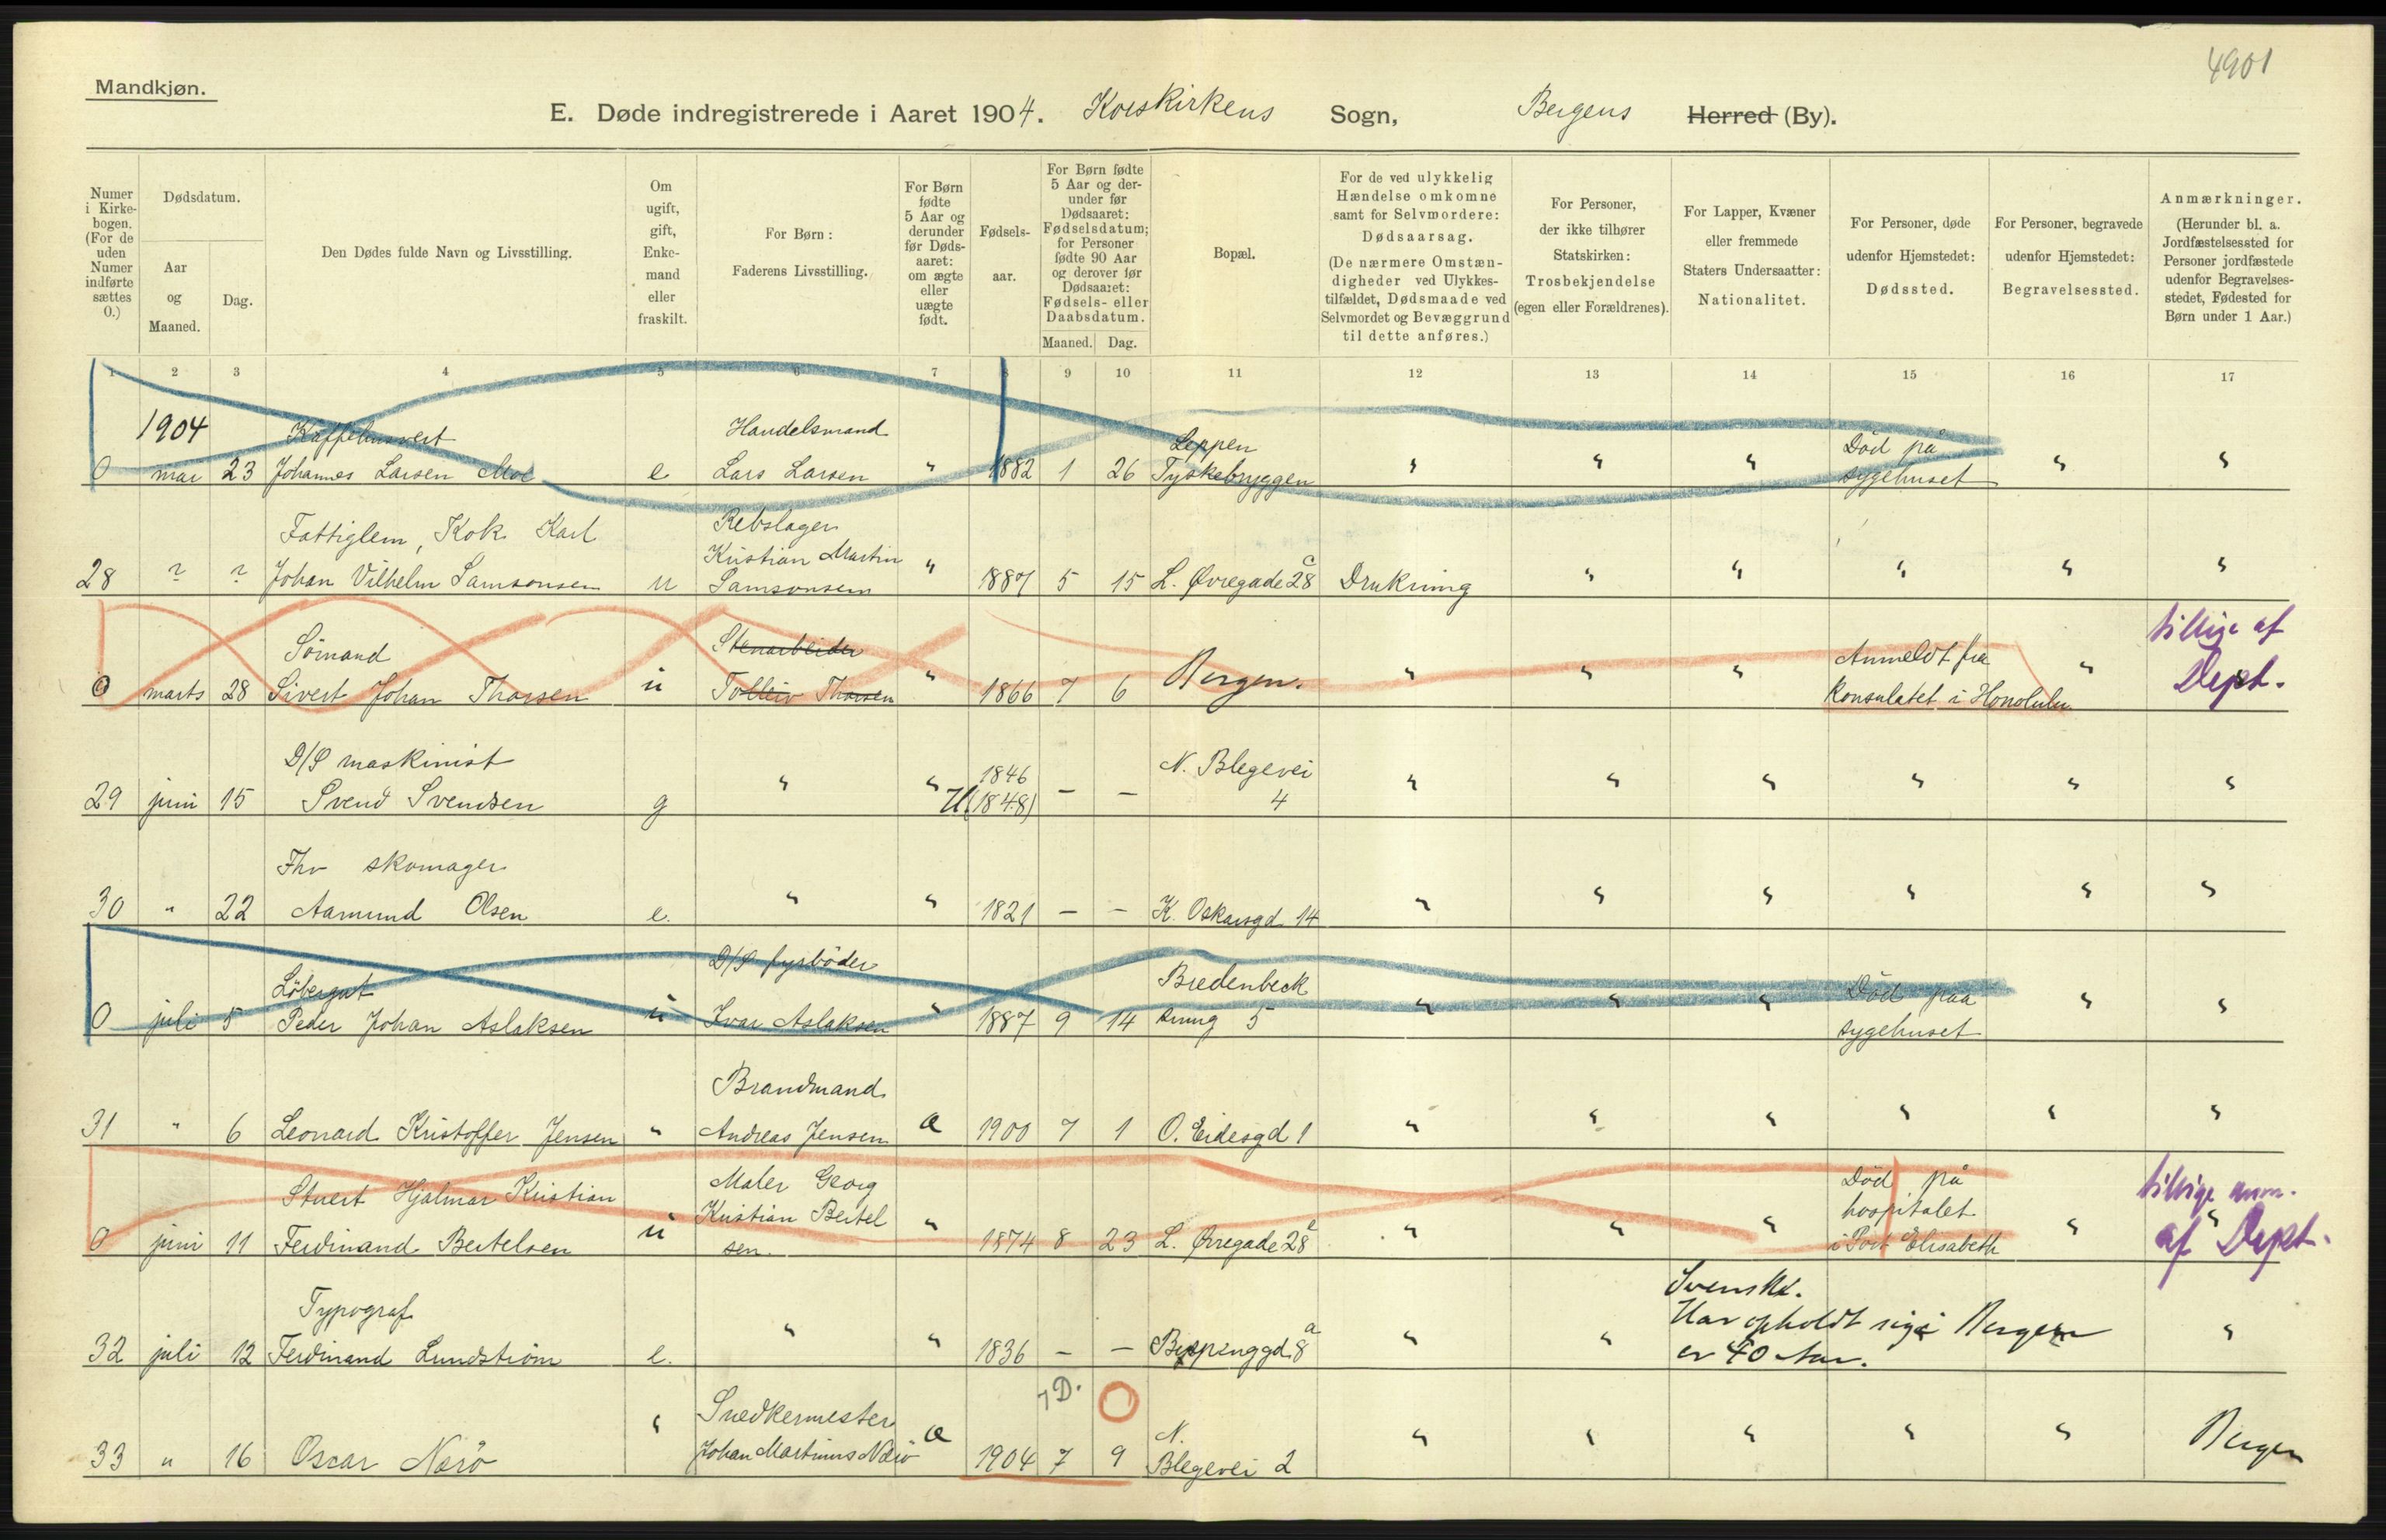 4901
Mandkjøn.
E. Døde indregistrerede i Aaret 1904. Korskirkens Sogn, Bergens Herred (By).
Numer i Kirkebogen. (For de uden Numer indførte sættes 0.)
Dødsdatum.
Aar og Maaned.
Dag.
Den Dødes fulde Navn og Livsstilling.
Om ugift, gift, Enkemand eller fraskilt.
For Børn: Faderens Livsstilling.
For Børn fødte 5 Aar og derunder før Dødsaaret: om ægte eller uægte født.
Fødselsaar.
For Børn fødte 5 Aar og derunder før Dødsaaret: Fødselsdatum; for Personer fødte 90 Aar og derover før Dødsaaret: Fødsels- eller Daabsdatum.
Maaned. Dag.
Bopæl.
For de ved ulykkelig Hændelse omkomne samt for Selvmordere: Dødsaarsag. (De nærmere Omstændigheder ved Ulykkestilfældet, Dødsmaade ved Selvmordet og Bevæggrund til dette anføres.)
For Personer, der ikke tilhører Statskirken: Trosbekjendelse (egen eller Forældrenes).
For Lapper, Kvæner eller fremmede Staters Undersaatter: Nationalitet.
For Personer, døde udenfor Hjemstedet: Dødssted.
For Personer, begravede udenfor Hjemstedet: Begravelsessted.
Anmærkninger. (Herunder bl. a. Jordfæstelsessted for Personer jordfæstede udenfor Begravelsesstedet, Fødested for Børn under 1 Aar.)
1 2 3 4 5 6 7 8 9 10 11 12 13 14 15 16 17
1904 Kaffehusvert Handelsmand Leppen Död på
0 mai 23 Johannes Larsen Moe e Lars Larsen " 1882 1 26 Tyskebryggen " " " sygehuset " "
Fattiglem, Kok Karl Rebslager Kristian Martin
28 ? ? Johan Vilhelm Samsonsen u Samsonsen " 1887 5 15 L. Øvregade 28 c Drukning " " " " "
Sömand Stenarbeider Anmeldt fra tillige af
0 marts 28 Sivert Johan Thorsen ü Tolleiv Thorsen " 1866 7 6 Bergen. " " " Konsulatet i Honolulu " Dept.
D/S maskinist 1846 N. Blegevei
29 juni 15 Svend Svendsen g " " U (1848) — — 4 " " " " " "
Fhv skomager
30 " 22 Aamund Olsen e. " " 1821 — — K. Oskarsgd. 14 " " " " " "
Löbergut D/S fyrböder Bredenbeck Död paa
0 juli 5 Peder Johan Aslaksen ü Ivar Aslaksen " 1887 9 14 smug 5 " " " sygehuset " "
Brandmand
31 " 6 Leonard Kristoffer Jensen " Andreas Jensen Æ 1900 7 1 O. Eidesgd 1 " " " " " "
Stuert Hjalmar Kristian Maler Georg Kristian Bertel Död på hospitalet tillige anm.
0 juni 11 Ferdinand Bertelsen ü sen. " 1874 8 23 L. Øvregade 28 c " " " i Port Elisabeth " af Dept.
Typograf Svensk. Har opholdt sig i Bergen
32 juli 12 Ferdinand Lundström e. " " 1836 — — Bispenggd. 8 a " " er 40 Aar. "
7 D. Snedkermester N.
33 " 16 Oscar Nærö " Johan Martinius Nærö Æ 1904 7 9 Blegevei 2 " " " " " Bergen